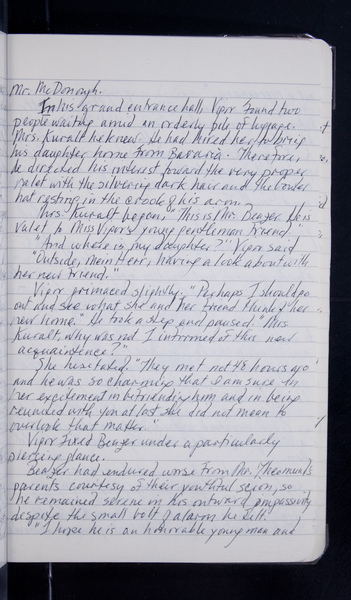 Mr. McDonough.
In his grand entrance hall Vipor found two
people waiting amid an orderly pile of luggage.
Mrs. Kuralt he knew. He had hired her to bring
his daughter home from Bavaria. Therefore,
he directed his interest toward the very proper
valet with the silvering dark hair and the bowler
hat resting in the crook of his arm.
Mrs. Kuralt began, "This is Mr. Benzer. He is
valet to Miss Vipor's young gentleman friend."
"And where is my daughter?" Vipor said.
"Outside, mein Herr, having a look about with
her new friend."
Vipor grimaced slightly. "Perhaps I should go
out and see what she and her friend think of her
new home." He took a step and paused. "Mrs.
Kuralt, why was not I informed of this new
acquaintence?"
She hesitated. "They met not 48 hours ago
and he was so charming that I am sure in
her excitement in befriending him and in being
reunited with you at last she did not mean to
overlook that matter."
Vipor fixed Benzer under a particularly
piercing glance.
Benzer had endured worse from Mr.
parents courtesy of their youthful scion, so
he remained serene in his outward impassivity
despite the small bolt of alarm he felt.
"I hope he is an honorable young man and